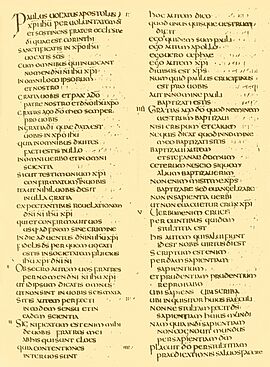 Paulus uocatus apostolus
xpi ihu per uoluntatem di
et sostenes frater ecclesiae
di quae est corinthi
sanctificatis in xpo ihu
uocatis scis
cum omnibus qui inuocant
nomen dni ni ihu xpi
in omni loco ipsorum
et nostro
gratia uobis et pax a do
patre nostro et dno ihu xpo
gratias ago do meo semper
pro uobis
in gratia di quae data est
uobis in xpo ihu
quia omnibus diuites
facti estis in illo
in omni uerbo et in omni
scientia
sicut testimonium xpi
confirmatum est in uobis
ita ut nihil uobis desit
in ulla gratia
expectantibus reuelationem
dni ni ihu xpi
qui et confirmabit uos
usq ad finem sine crimine
in die aduentus dni ni ihu xpi
fidelis ds per quem uocati
estis in societatem filii eius
ihu xpi dni ni
Obsecro autem uos fratres
per nomen dni ni ihu xpi
ut id ipsum dicatis omnes
et non sint in uobis scismata
sitis autem perfecti
in eodem sensu et in
eadem scientia
significatum est enim mihi
de uobis fratres mei
ab his qui sunt cloes
quia contentiones
inter uos sunt
hoc autem dico
quod unusquisque uestrum
dicit
ego quidem sum pauli
ego autem apollo
ego uero cephae
ego autem xpi
diuisus est xps
numquid paulus crucifixus
est pro uobis
aut in nomine pauli
baptizati estis
Gratias ago do quod neminem
uestrum baptizaui
nisi crispum et gaium
ne quis dicat quod in nomine
meo baptizati estis
baptizaui autem
et stephanae domum
ceterum nescio si quem
alium baptizauerim
non enim misit me xps
baptizare sed euangelizare
non in sapientia uerbi
ut non euacuetur crux xpi
Uerbum enim crucis
pereuntibus quidem
stultitia est
his autem qui salui fiunt
id est nobis uirtus di est
scriptum est enim
perdam sapientiam
sapientium
et prudentiam prudentium
reprobabo
ubi sapiens ubi scriba
ubi inquisitor huius saeculi
nonne stultam fecit ds
sapientiam huius mundi
nam quia in di sapientia
non cognouit mundus
per sapientiam dm
placuit do per stultitiam
praedicationis saluos facere